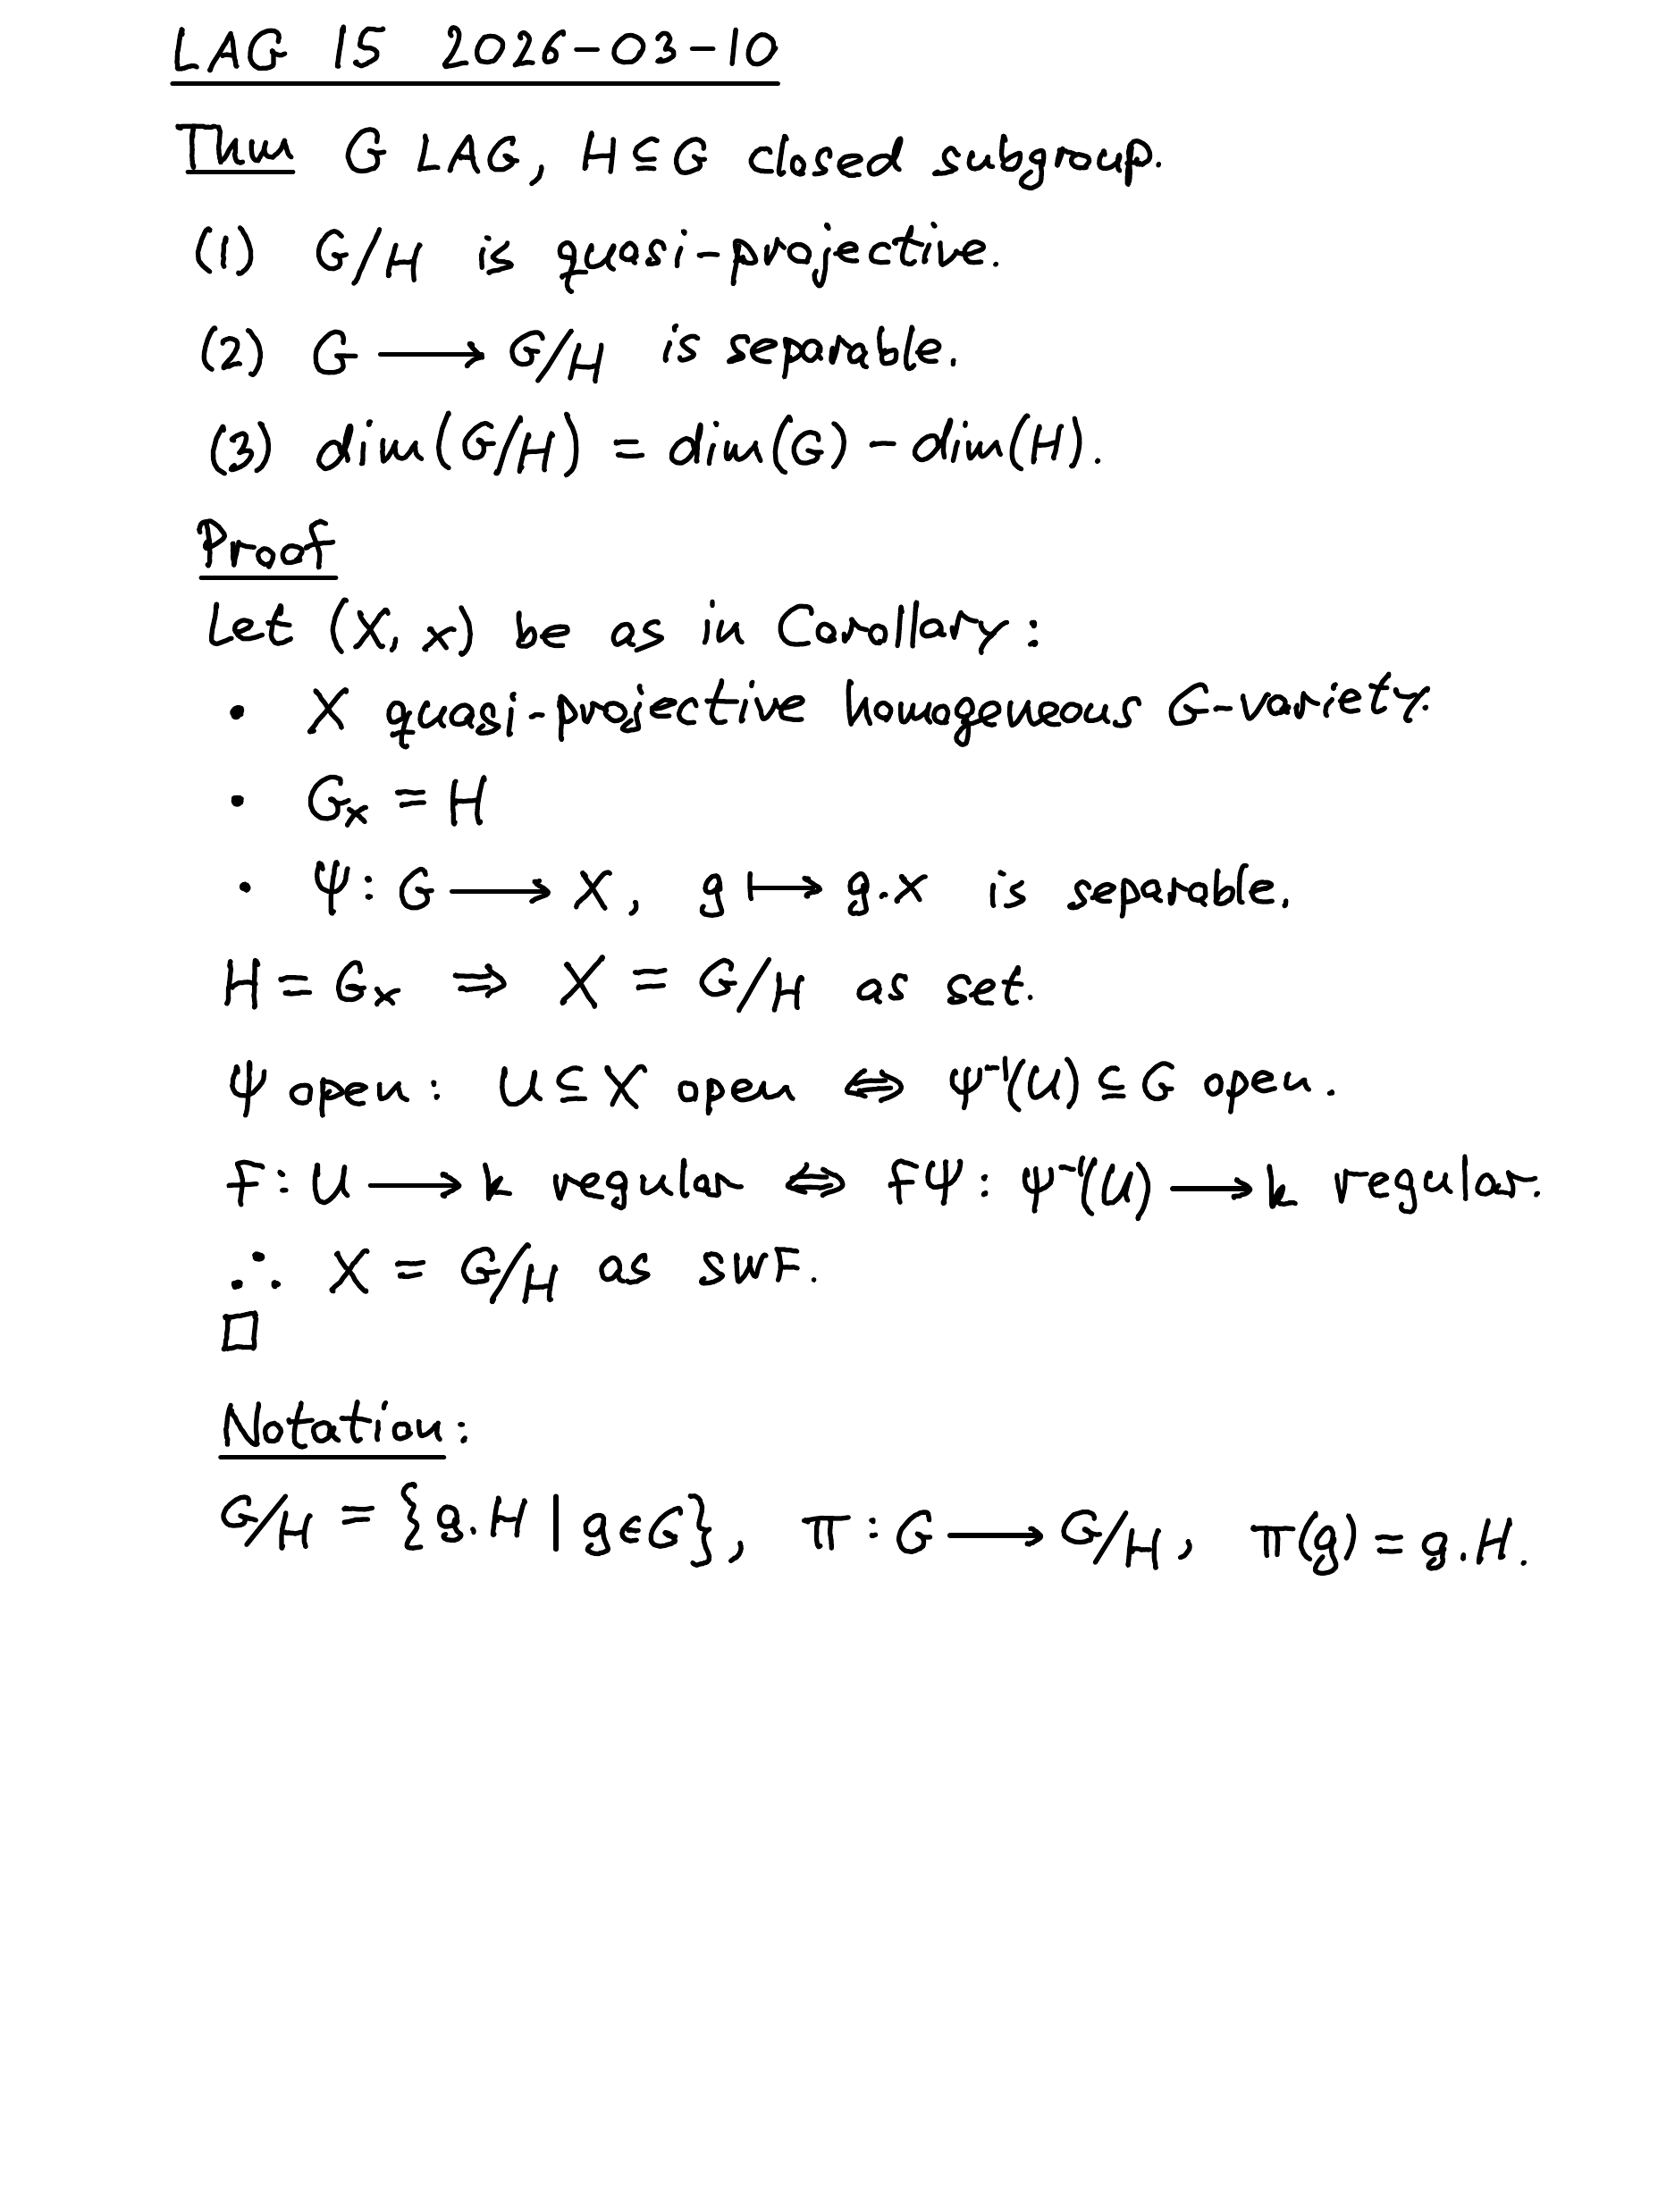 LAG 15 2026-03-10
Thm G LAG, H ⊆ G closed subgroup.
(1) G/H is quasi-projective.
(2) G ⟶ G/H is separable.
(3) dim(G/H) = dim(G) - dim(H).
Proof
Let (X, x) be as in Corollary:
• X quasi-projective homogeneous G-variety.
• Gₓ = H
• Ψ: G ⟶ X, g ⟼ g.x is separable.
H = Gₓ ⇒ X = G/H as set.
Ψ open: U ⊆ X open ⇔ Ψ⁻¹(U) ⊆ G open.
f: U ⟶ k regular ⇔ fΨ: Ψ⁻¹(U) ⟶ k regular.
∴ X = G/H as SWF.
□
Notation:
G/H = {g.H | g∈G}, π: G ⟶ G/H, π(g) = g.H.